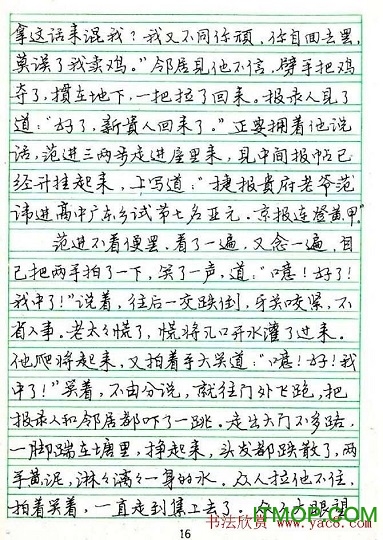 拿这话来混我？我又不同你顽，你自回去罢，
莫误了我卖鸡。”邻居见他不信，劈手把鸡
夺了，掼在地下，一把拉了回来。报录人见了
道：“好了，新贵人回来了。”正要拥着他说
话，范进三两步走进屋里来，见中间报帖已
经升挂起来，上写道：“捷报贵府老爷范
讳进高中广东乡试第七名亚元。京报连登黄甲。”
范进不看便罢，看了一遍，又念一遍，自
己把两手拍了一下，笑了一声，道：“噫！好了！
我中了！”说着，往后一交跌倒，牙关咬紧，不
省人事。老太太慌了，慌将几口开水灌了过来。
他爬将起来，又拍着手大笑道：“噫！好！我
中了！”笑着，不由分说，就往门外飞跑，把
报录人和邻居都吓了一跳。走出大门不多路，
一脚踹在塘里，挣起来，头发都跌散了，两
手黄泥，淋淋漓漓一身的水。众人拉他不住，
拍着笑着，一直走到集上去了。众人大眼望
ITMOP.COM
书法欣赏 www.yac8.com
16